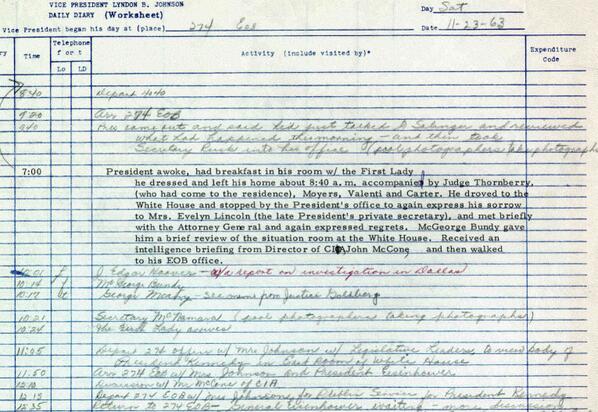 VICE PRESIDENT LYNDON B. JOHNSON
DAILY DIARY (Worksheet)
Day Sat
Vice President began his day at (place) 274 EOB Date 11-23-63
Time Telephone f or t Activity (include visited by)* Expenditure Code
Lo LD
8:40 Depart 4040
9:20 Arr 274 EOB
9:40 Pres came out and said he'd just talked to Salinger and reviewed
what had happened this morning - and then took
Secretary Rusk into his office (pool photographers take photographs
7:00 President awoke, had breakfast in his room w/ the First Lady
he dressed and left his home about 8:40 a. m. accompanied by Judge Thornberry,
(who had come to the residence), Moyers, Valenti and Carter. He droved to the
White House and stopped by the President's office to again express his sorrow
to Mrs. Evelyn Lincoln (the late President's private secretary), and met briefly
with the Attorney General and again expressed regrets. McGeorge Bundy gave
him a brief review of the situation room at the White House. Received an
intelligence briefing from Director of CIA John McCone and then walked
to his EOB office.
10:01 f J. Edgar Hoover - a/a report on investigation in Dallas
10:14 f McGeorge Bundy
10:17 t George Meany - see memo from Justice Goldberg
10:21 Secretary McNamara (pool photographers taking photographs)
10:24 The First Lady arrives
11:05 Depart 274 office w/ Mrs Johnson w/ Legislative Leaders to view body of
President Kennedy in East Room of White House
11:50 Arr 274 EOB w/ Mrs Johnson and President Eisenhower
12:10 Discussion w/ Mr McCone of CIA
12:15 Depart 274 EOB w/ Mrs Johnson for Service for President Kennedy
12:35 Return to 274 EOB - General Eisenhower waiting - more discussions